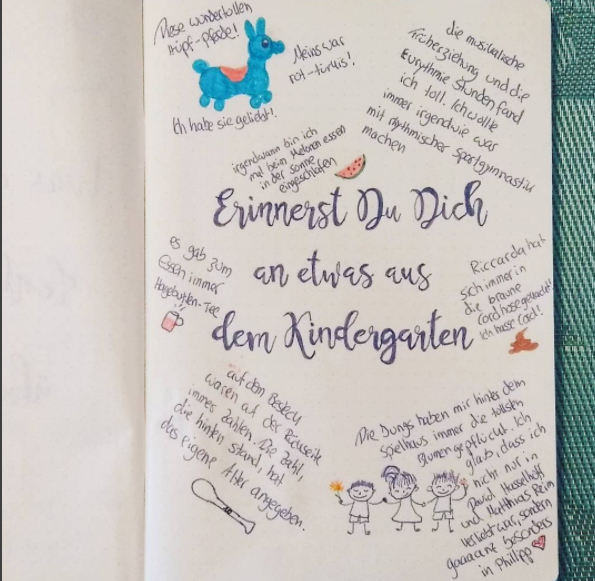 Diese wundervollen
Hüpf-pferde!
Meins war
rot-türkis!
Ich habe sie geliebt!
die musikalische
Früherziehung und die
Eurythmie stunden fand
ich toll. Ich wollte
immer irgendwie was
mit rhythmischer Sportgymnastik
machen
irgendwann bin ich
mal beim Melonen essen
in der Sonne
eingeschlafen
Erinnerst Du Dich
an etwas aus
dem Kindergarten
es gab zum
Essen immer
Hagebutten-Tee
Riccarda hat
sich immer in
die braune
Cordhose gekackt!
Ich hasse Cord!
auf dem Besteck
waren auf der Rückseite
immer Zahlen. Die Zahl,
die hinten stand, hat
das eigene Alter angegeben.
Die Jungs haben mir hinter dem
Spielhaus immer die tollsten
Blumen gepflückt. Ich
glaub, dass ich
nicht nur in
David Hasselhoff
und Matthias Reim
verliebt war, sondern
gaaaanz besonders
in Philipp